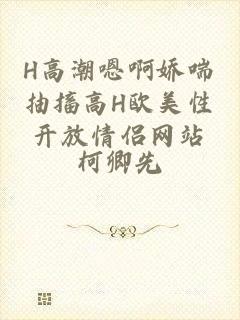 H高潮嗯啊娇喘
抽搐高H欧美性
开放情侣网站
柯卿先